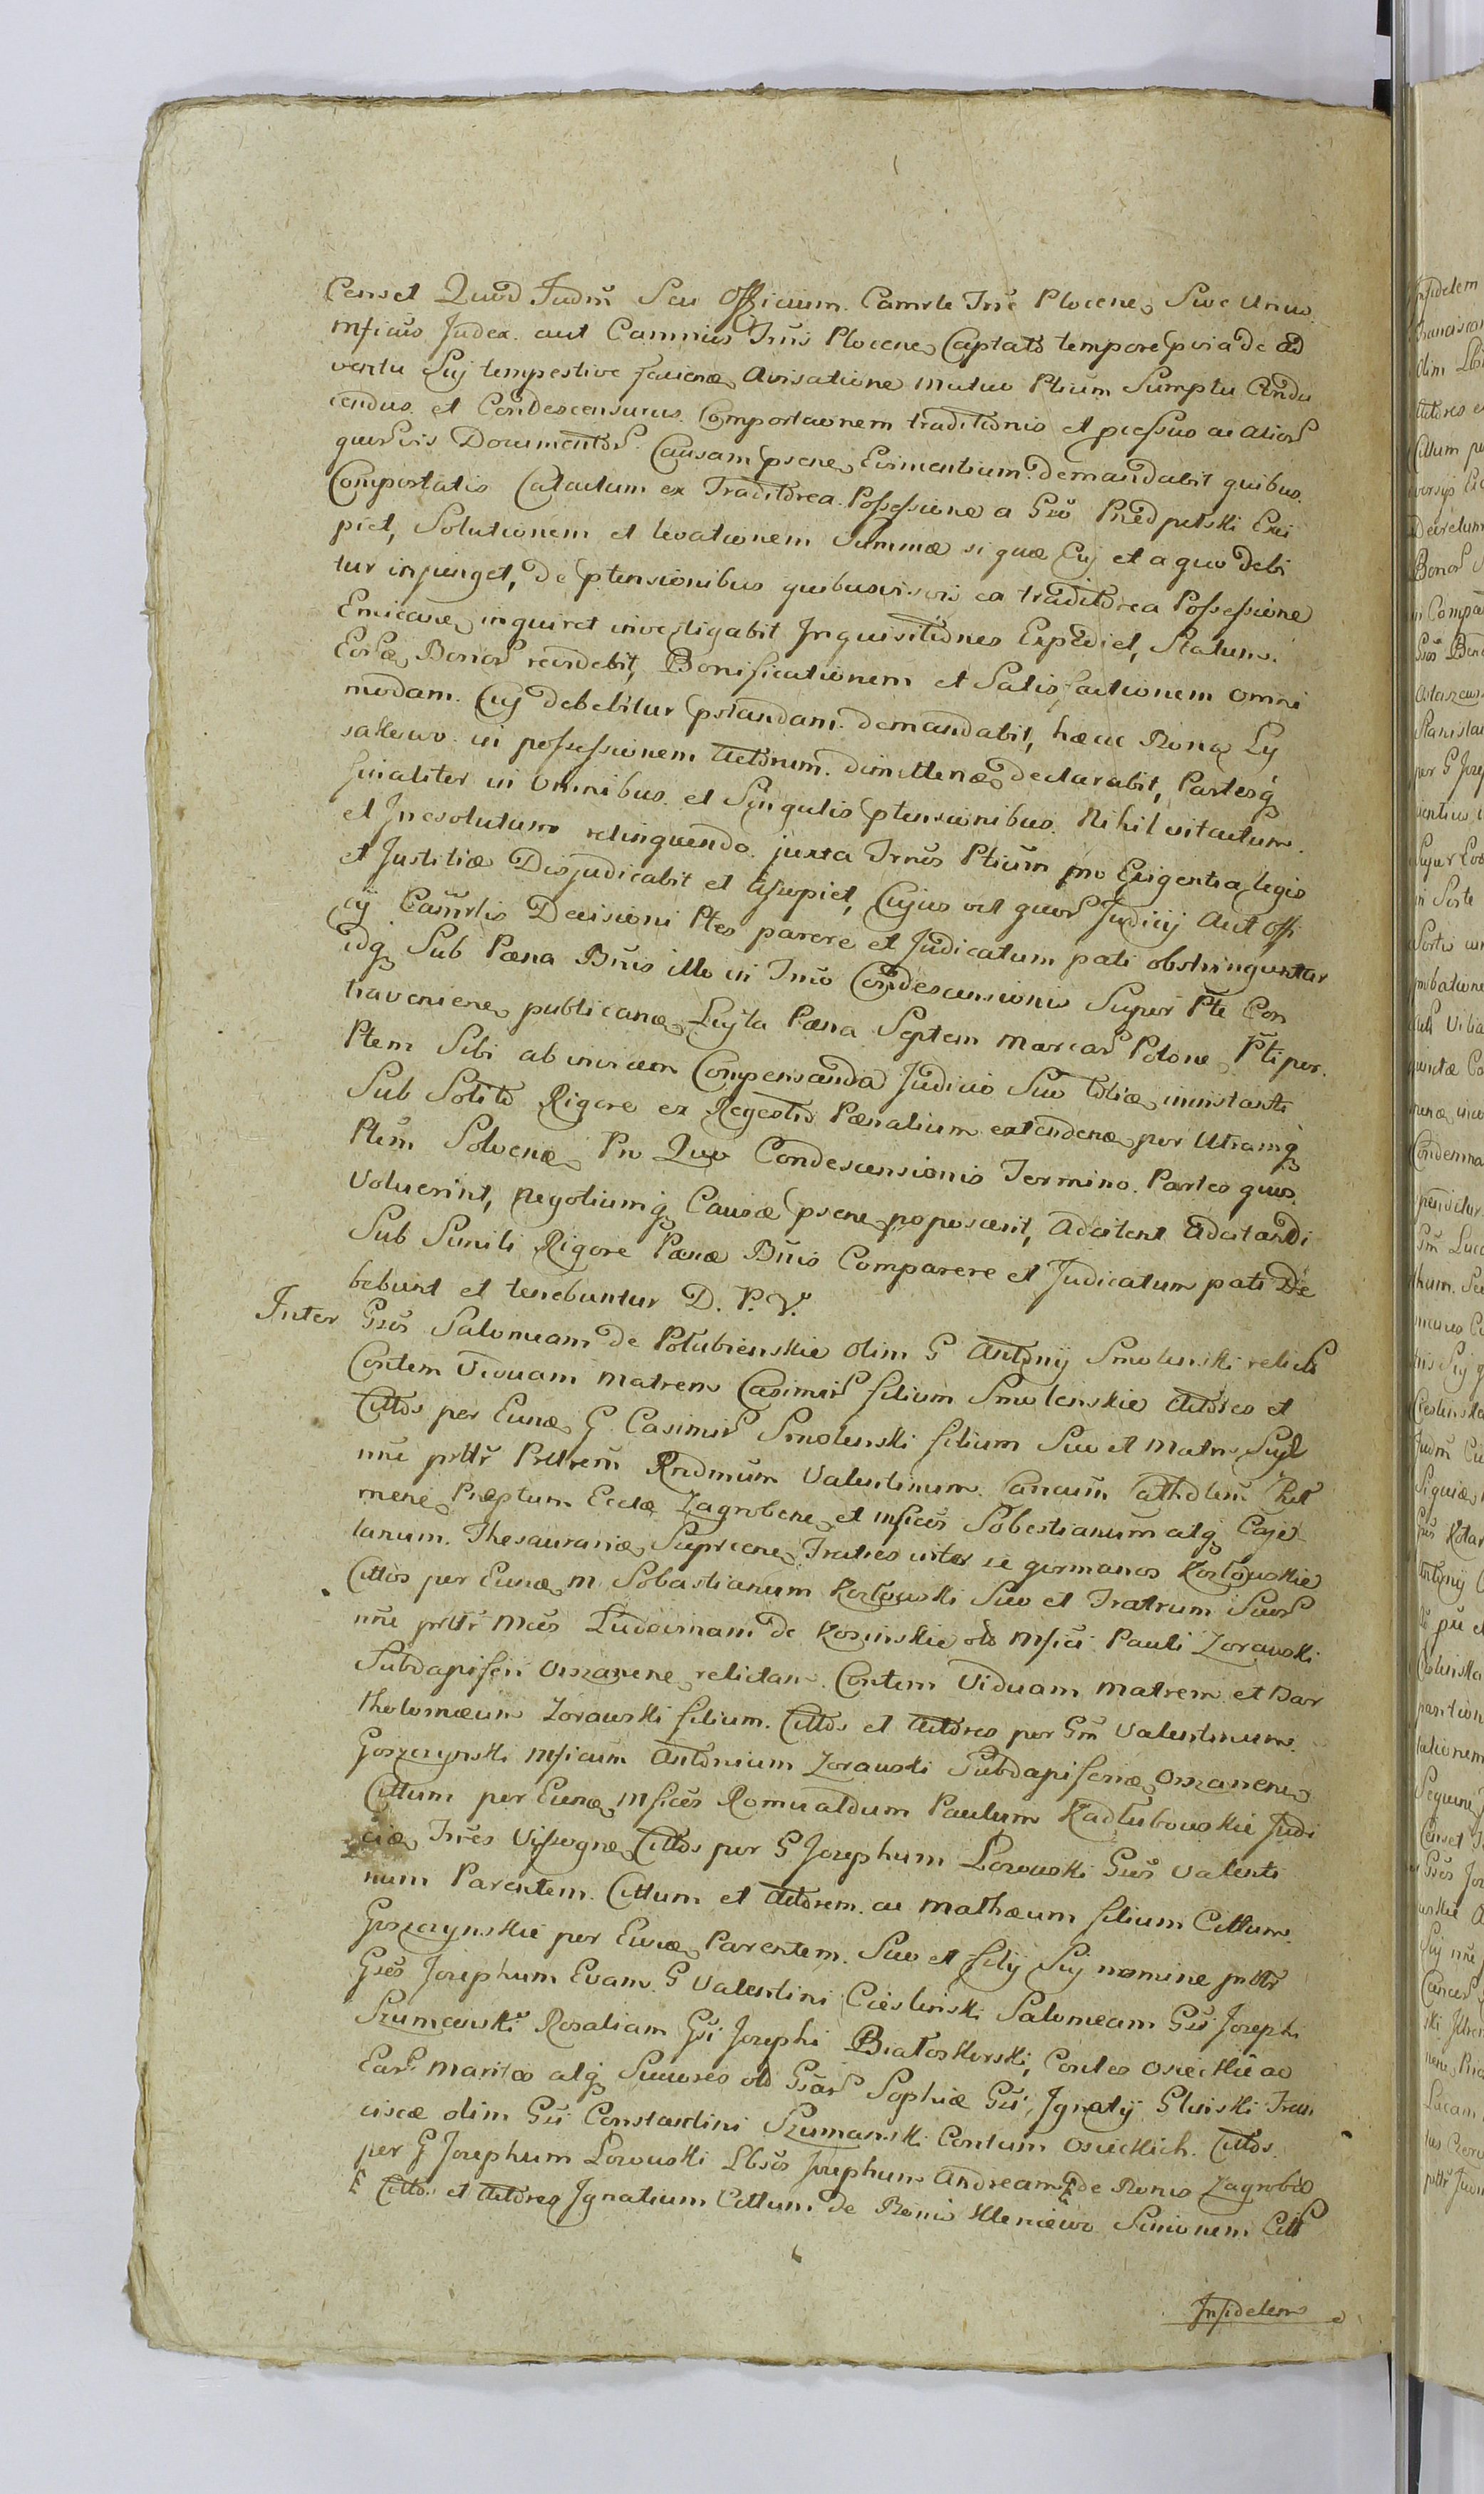 Censet Quod Judm Seu Officium Camrle Trre Plocene Sive Unus
Mficus Judex aut Camrius Trris Plocene Captato tempore pvia de ad
ventu Suj tempestive faciena Avisatione mutuo Ptium Sumptu Condu
cendus et Condescensurus Comportaonem traditionis et pcessus ac alior
quorvis Documentor Causam psene Evincentium demandabit quibus
Comportatis Calculum ex Traditorea Possessione a Gso Przedpelski Exci
piet, Solutionem et levationem Summæ si quæ Cuj et a quo debi
tur injunget, De ptensionibus quibusvis ex traditorea Possessione
Emicare inquiret investigabit Inquisitiones Expediet, Statum
Eor Bonor recondebit, Bonificationem et Satisfactionem omni
modam Cuj debebitur pstandam demandabit, hæcce Bona Ly
sakowo in possessionem Actorum dimittena declarabit, Partesq
finaliter in Omnibus et Singulis ptensionibus Nihil intactum
et Inresolutum relinquendo juxta Trnos Ptium pro Exigentia legis
et Justitiæ Disjudicabit et Absopiet, Cujus vel quor Judicij Aut Offi
cij Camrlis Decisioni Ptes parere et Judicatum pati obstringuntur
idq Sub Pæna Bnis illo in Trmo Condescensionis Super Pte Con
traveniene publicana Luita Pæna Septem Marcar Polone Pti per
Ptem Sibi ab invicem Compensanda Judicio Suo totiæ ininstanti
Sub Solito Rigore ex Regestro Pænalium extendena per Utramq
Ptem Solvena Pro Quo Condescensionis Termino Partes quos
Voluerint, negotiumq Causæ psene poposcerit, Adcitent Adcitandi
Sub Simili Rigore Pænæ Bnis Comparere et Judicatum pati De
bebunt et tenebuntur D. P. V.
Inter Gsos Salomeam de Połubienskie Olim G Antonij Smolenski relict
Contem Viduam Matrem Casimir filium Smolenskie Actores et
Cittos per Eunæ G Casimir Smolenski filium Suo et Matris Suæ
nne prttr Prttrem Rndmum Valentinum Cancum Cathdlem
mene Præptum Eclæ Zagrobene et Mficos Sobestianum atq Caje
tanum Thesaurariæ Supriene Fratres inter se germanos Kozłowskie
Cittos per Eunæ M Sobastianum Kozłowski Suo et Fratrum Suor
nne prttr Mcos Ludovinam de Kosinskie olo Mfici Pauli Zorawski
Subdapiferi Orszanene relictam Contem Viduam Matrem et Bar
tholomæum Zorawski filium Cittos et Actores per Gm Valentinum
Goszczynski Mficum Antonium Zorawski Subdapiferiæ Orszanene
Cittum per Eunæ Mficos Romualdum Paulum Kadłubowskie Judi
ciæ Trres Vissogne Cittos per G Josephum Lozowski Gsos Valenti
num Parentem Cittum et Actorem ac Mathæum filium Cittum
Goszczynskie per Eunæ Parentem Suo et filij Suj nomine prttr
Gsos Josephum Evam G Valentini Cieslinski Salomeam Gsi Josephi
Szumanski Rozaliam Gsi Josephi Białoskorski, Contes Osieckie ac
Ear Maritos atq Succres olo Gsar Sophiæ Gsi Ignatij Glinski Fran
ciscæ olim Gsi Constantini Szumanski Contum Osieckich Cittos
per G Josephum Lozowski Lbsos Josephum Andream de Bonis Zagroba
Cittos et Actores Ignatium Cittum de Bonis Kleniewo Simonem Citt
Infidelem